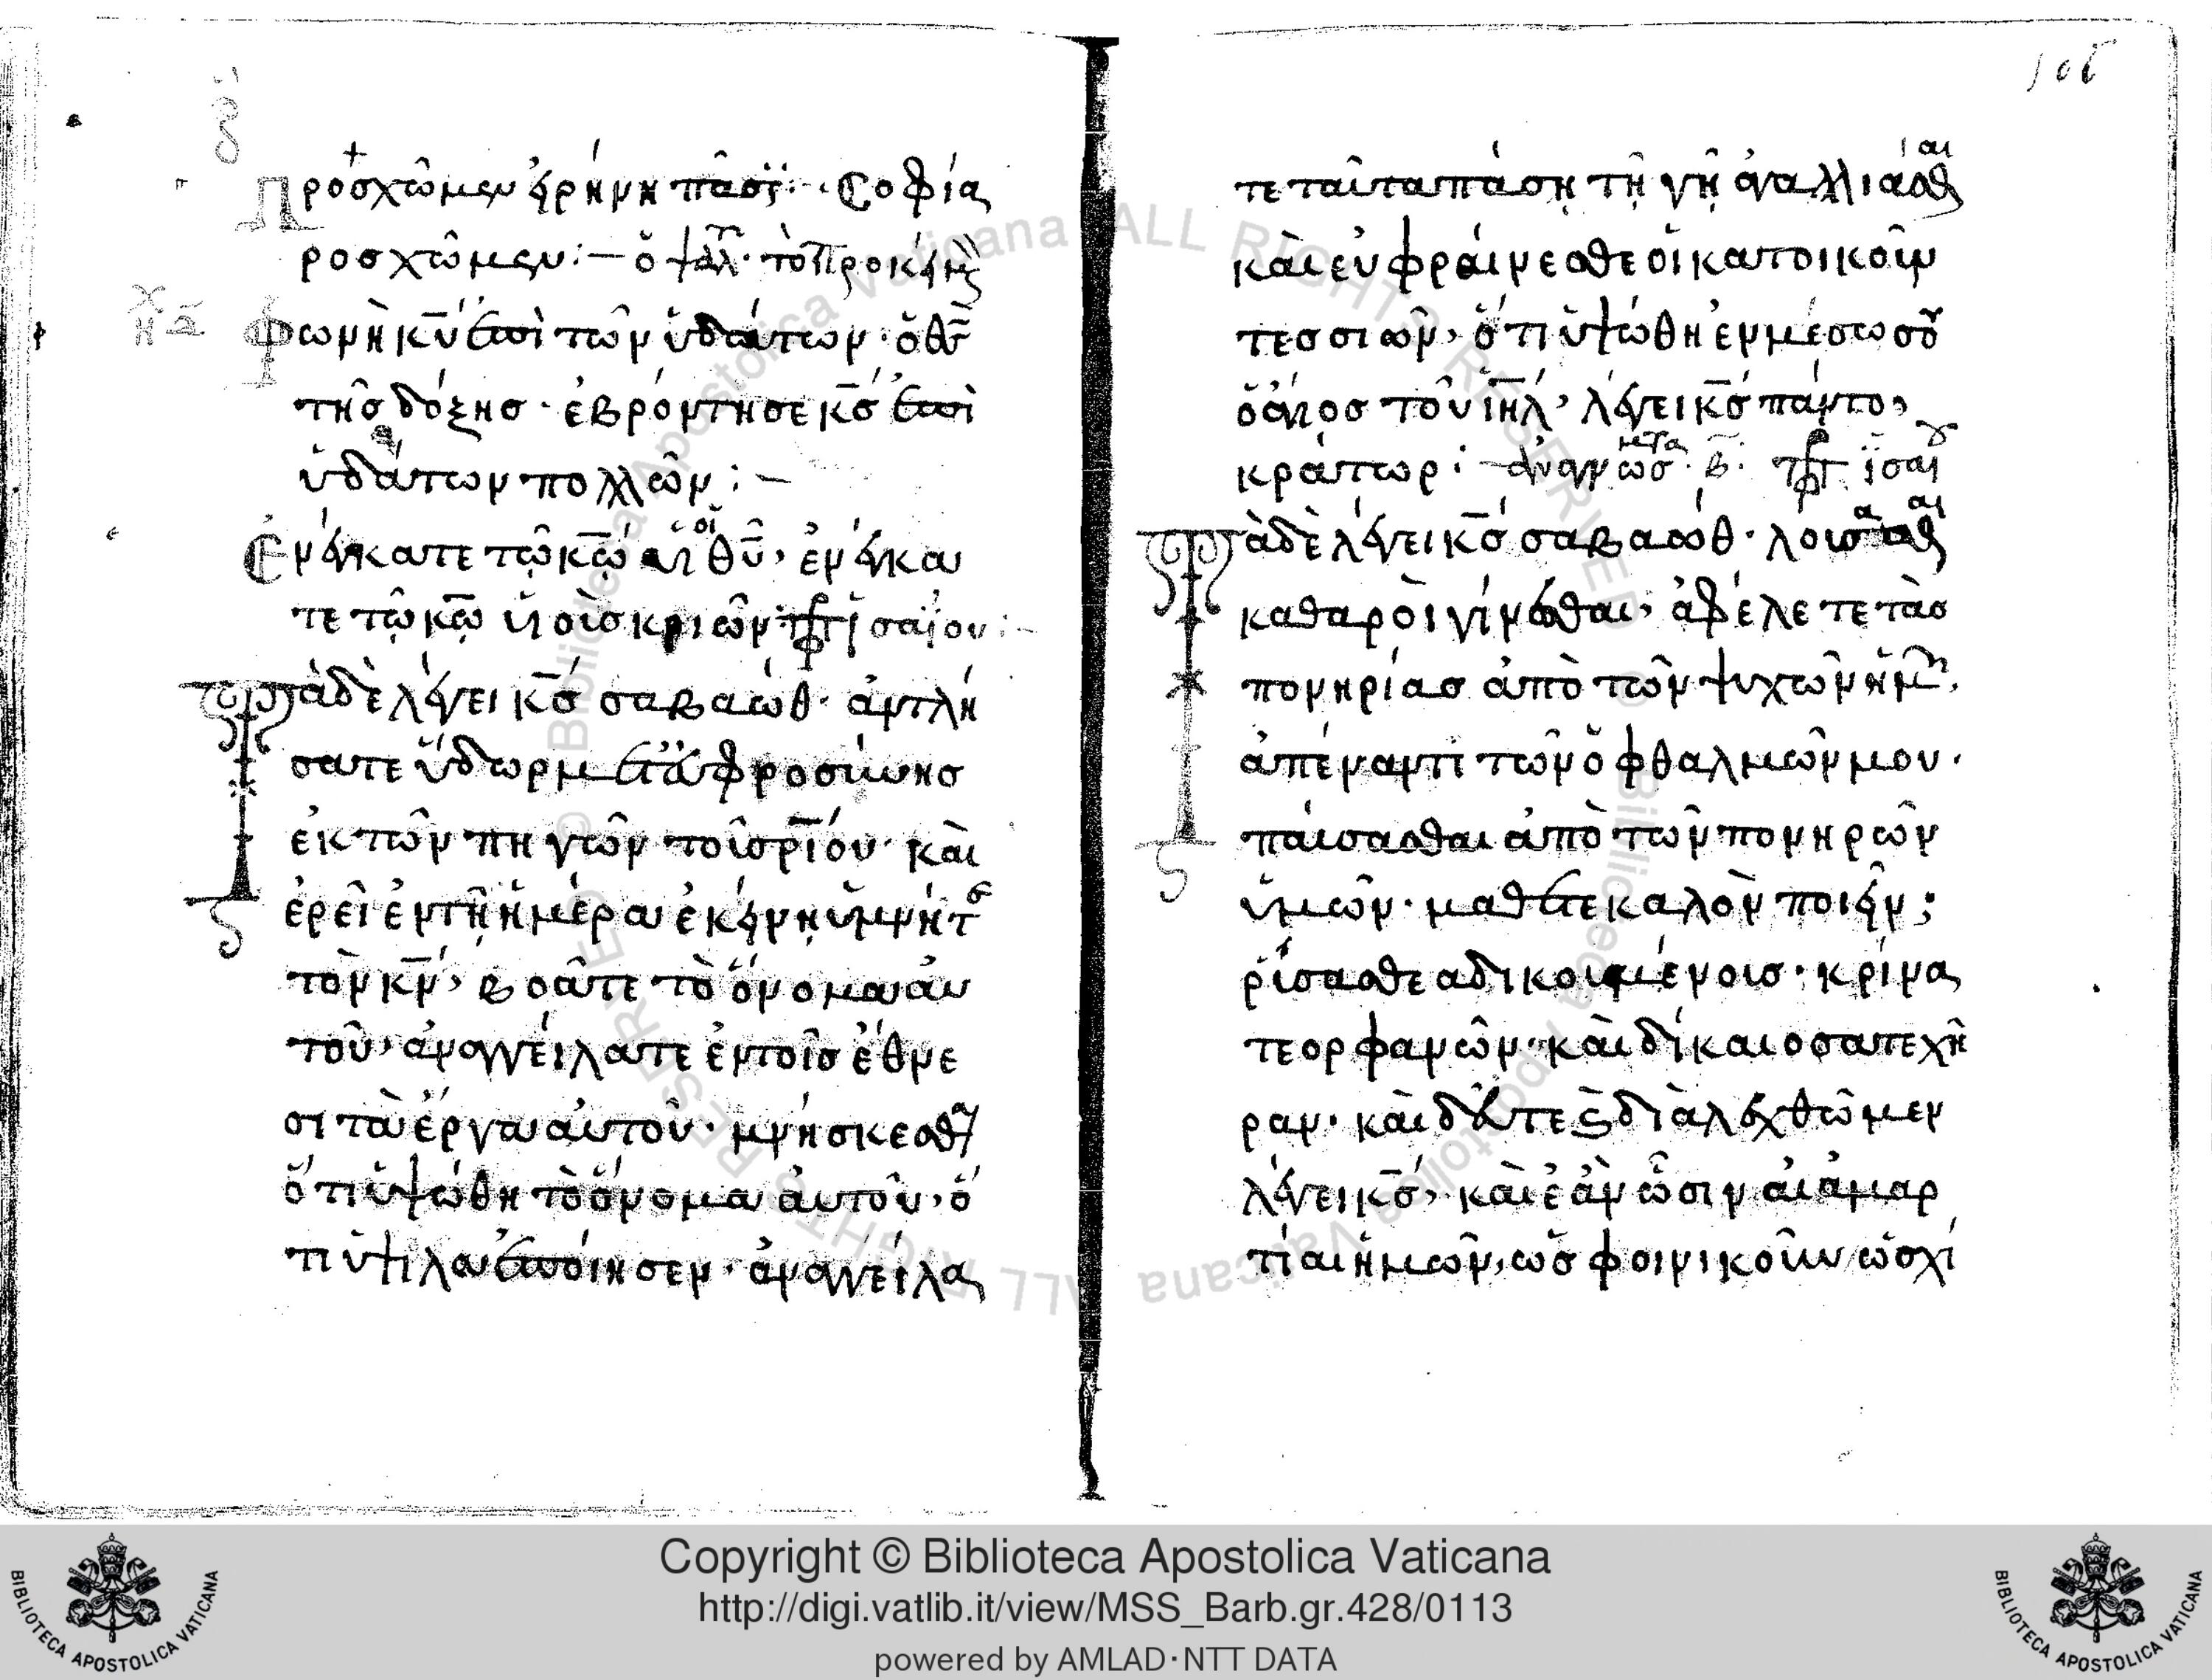 Προσχῶμεν εἰρήνη πᾶσϊ:· Σοφία
ροσχῶμεν:— ὁ ψαλτ· τὸ προκείμ
Φωνὴ κυ ἐπὶ τῶν ὑδάτων· ὁ θσ
τῆς δόξης· ἐβρόντησε κσ ἐπὶ
ὑδάτων πολλῶν:—
Ἐνέγκατε τῶ κω υἱοὶ θυ, ἐνέγκα
τε τῶ κω υἱοὺς κριῶν: προφητ ἡσαΐου:—
Τάδε λέγει κσ σαβαώθ· ἀντλή
σατε ὕδωρ μετ εὐφροσύνης
ἐκ τῶν πηγῶν τοῦ σριου· καὶ
ἐρεῖ ἐν τῇ ἡμέρα ἐκείνη ὑμνήτ
τὸν κν, βοᾶτε τὸ ὄνομα αὐ
τοῦ, ἀναγγείλατε ἐν τοῖς ἔθνε
σι τὰ ἔργα αὐτοῦ· μνήσκεσθ
ὅτι ὑψώθη τὸ ὄνομα αὐτοῦ, ὅ
τι ὑψιλὰ ἐποίησεν· ἀναγγείλα
106
τε ταῦτα πάση τῇ γῇ ἀγαλλιᾶσθαι
καὶ εὐφραίνεσθε οἱ κατοικοῦν
τες σιών, ὅτι ὑψώθη ἐν μέσω σου
ὁ ἅγιος τοῦ ιηλ, λέγει κσ παντο
κράτωρ: ἀναγνωσμα β· προφητ ἡσαΐου
Τάδε λέγει κσ σαβαώθ· λούσασθαι
καθαροὶ γίνεσθαι, ἀφέλετε τὰς
πονηρίας ἀπὸ τῶν ψυχῶν ἡμῶν,
ἀπέναντι τῶν ὀφθαλμῶν μου·
παύσασθαι ἀπὸ τῶν πονηρῶν
ὑμῶν· μάθετε καλὸν ποιεῖν;
ρύσασθε αδικουμένοις· κρίνα
τε ορφανῶν· καὶ δικαιοσατε χή
ραν· καὶ δεῦτε ϛ διαλεχθῶμεν
λέγει κσ, καὶ ἐὰν ὦσιν αἱ ἁμαρ
τίαι ἡμῶν, ὡς φοινικοῦν ὡς χι
Copyright © Biblioteca Apostolica Vaticana
http://digi.vatlib.it/view/MSS_Barb.gr.428/0113
powered by AMLAD·NTT DATA
BIBLIOTECA APOSTOLICA VATICANA
BIBLIOTECA APOSTOLICA VATICANA